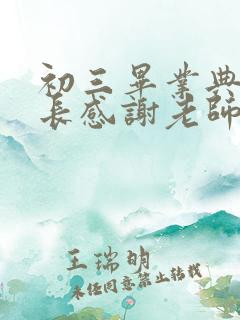 初三畢業典
長感謝老師
王瑞明
未任同意禁止轉載